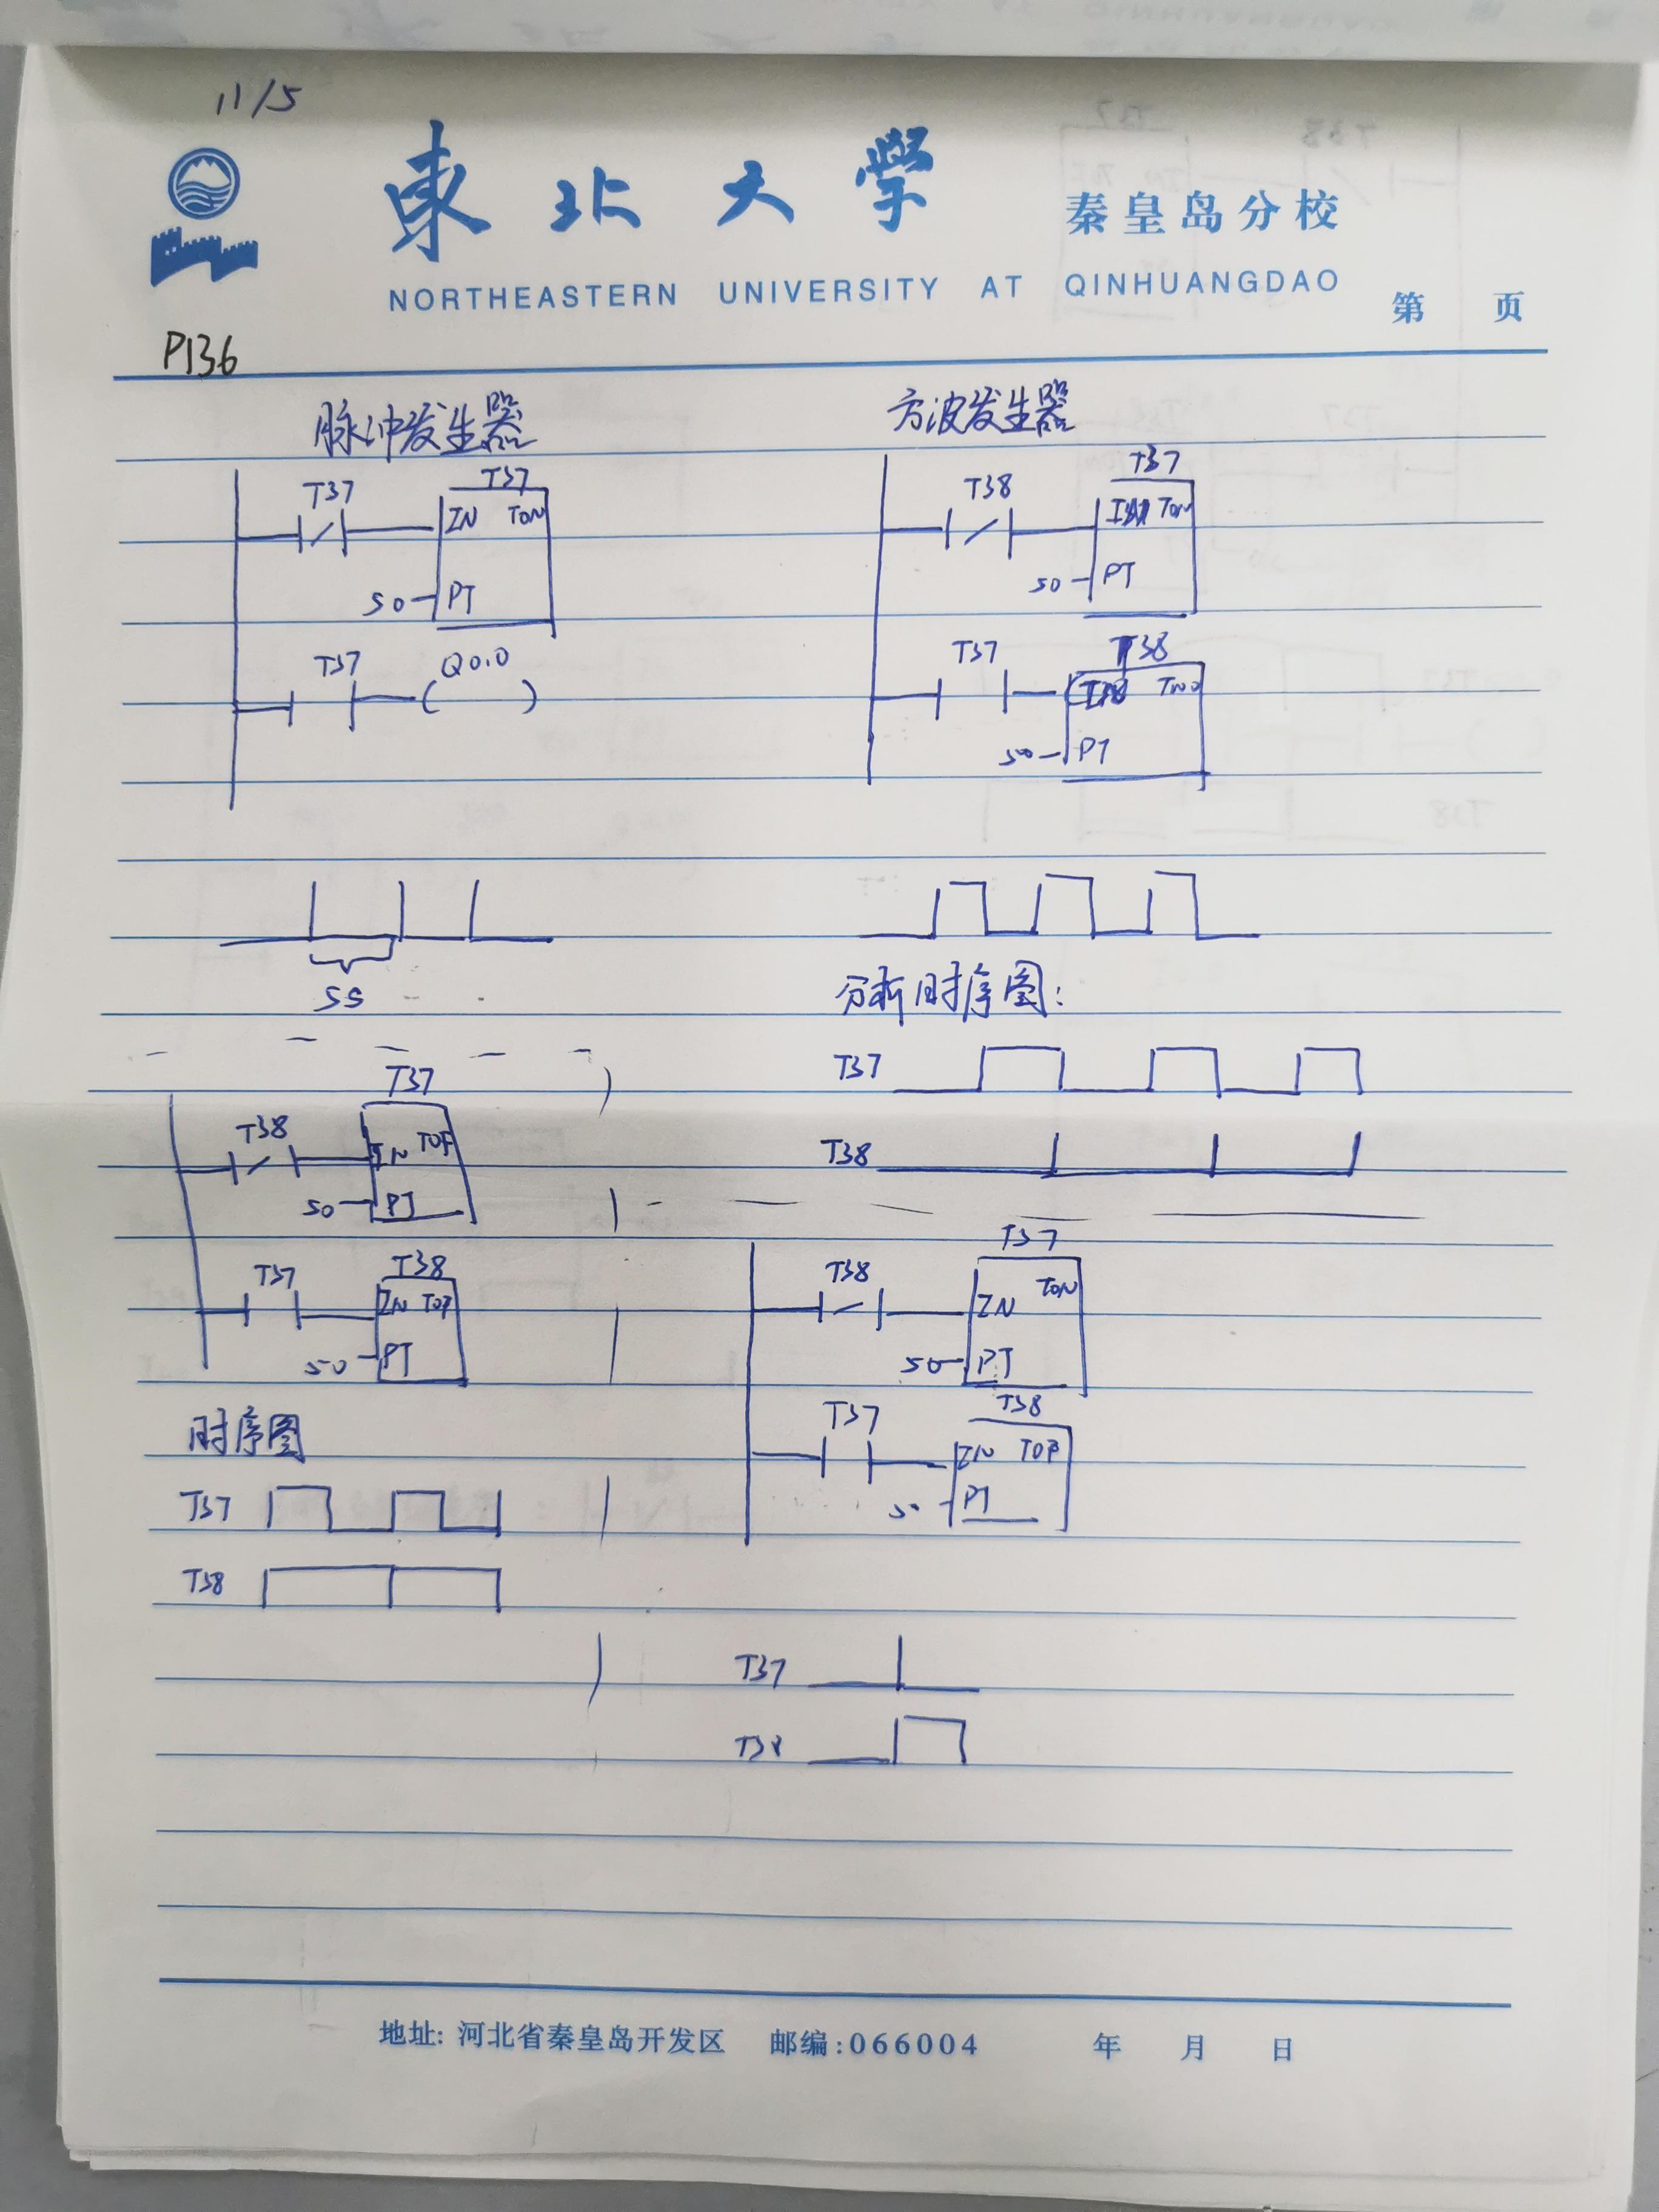 11/5
東北大學 秦皇岛分校
NORTHEASTERN UNIVERSITY AT QINHUANGDAO
第 页
P136
脉冲发生器
T37 T37
IN TON
50 PT
T37 Q0.0
5S
方波发生器
T38 T37
TON
50 PT
T37 T38
50 PT
分析时序图:
T37
T38
T37
T38 IN TOF
50 PT
T37 T38
IN TOF
50 PT
时序图
T37
T38
T37
T38 IN TON
50 PT
T37 T38
IN TOF
50 PT
T37
T38
地址: 河北省秦皇岛开发区 邮编:066004 年 月 日